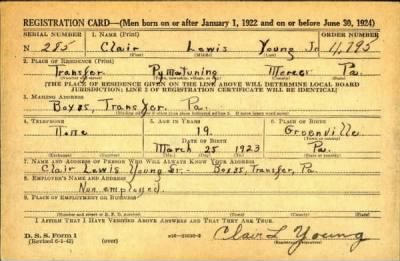 REGISTRATION CARD—(Men born on or after January 1, 1922 and on or before June 30, 1924)
SERIAL NUMBER 1. NAME (Print) ORDER NUMBER
N 285 Clair Lewis Young Jr 11,795
(First) (Middle) (Last)
2. PLACE OF RESIDENCE (Print)
Transfer Pymatuning Mercer Pa.
(State)
[THE PLACE OF RESIDENCE GIVEN ON THE LINE ABOVE WILL DETERMINE LOCAL BOARD
JURISDICTION; LINE 2 OF REGISTRATION CERTIFICATE WILL BE IDENTICAL]
3. MAILING ADDRESS
Box 85, Transfer. Pa.
4. TELEPHONE 5. AGE IN YEARS 6. PLACE OF BIRTH
None 19. Greenville
DATE OF BIRTH
March 25 1923 Pa.
(Exchange) (Number) (Mo.) (Day) (Yr.) (State or country)
7. NAME AND ADDRESS OF PERSON WHO WILL ALWAYS KNOW YOUR ADDRESS
Clair Lewis Young Sr.- Box 85, Transfer, Pa.
8. EMPLOYER'S NAME AND ADDRESS
Non employed.
9. PLACE OF EMPLOYMENT OR BUSINESS
(Number and street or R. F. D. number) (Town) (County) (State)
I AFFIRM THAT I HAVE VERIFIED ABOVE ANSWERS AND THAT THEY ARE TRUE.
D. S. S. Form 1
(Revised 6-1-42) (over) Clair L Young